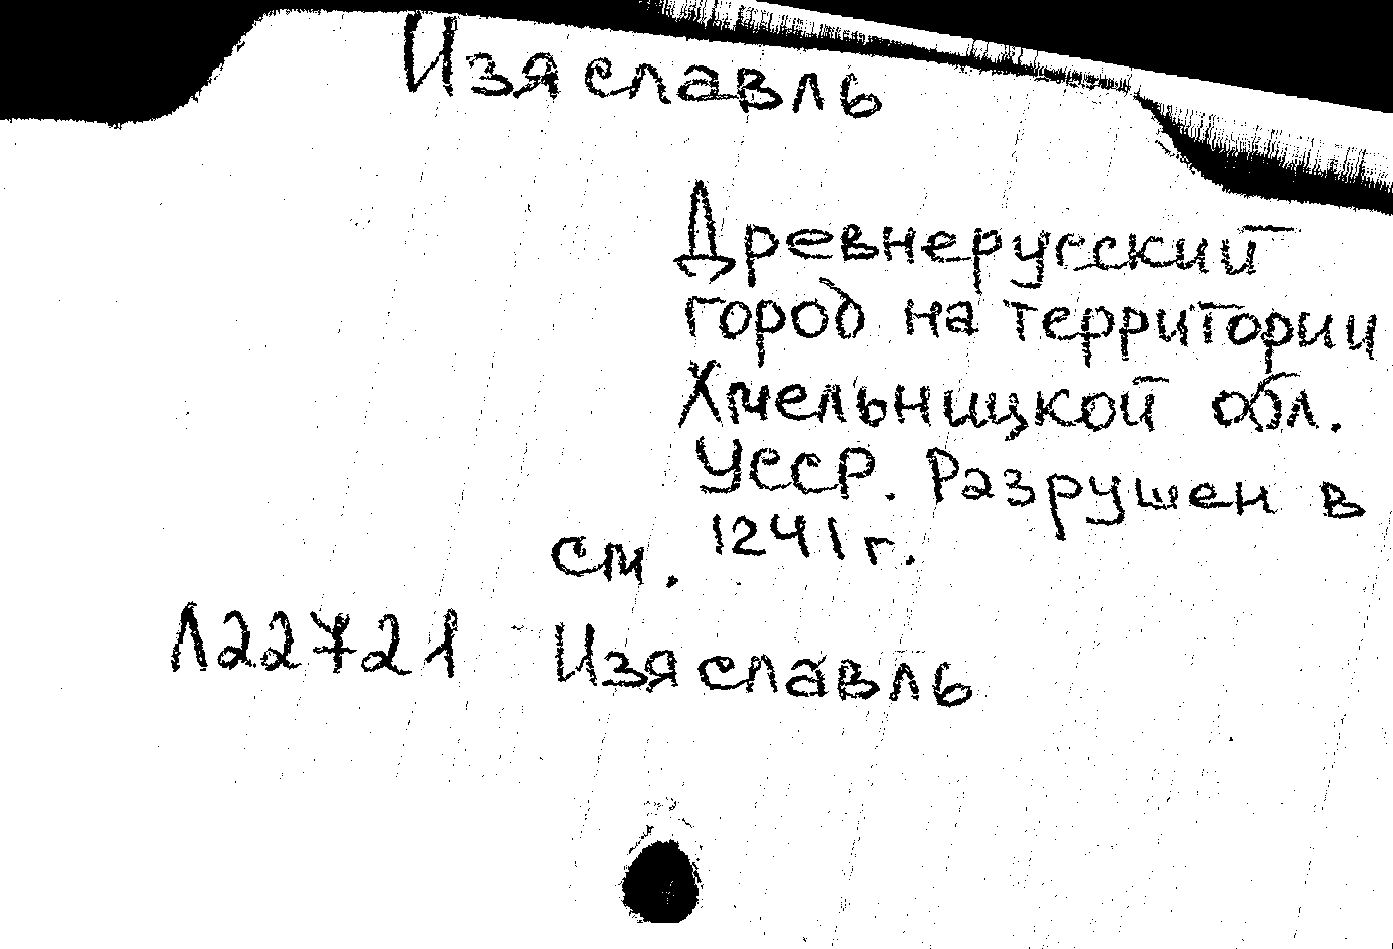 Изяславль
Древнерусский
город на территории
Хмельницкой обл.
УССР. Разрушен в
1241 г.
см.
Л22721 Изяславль